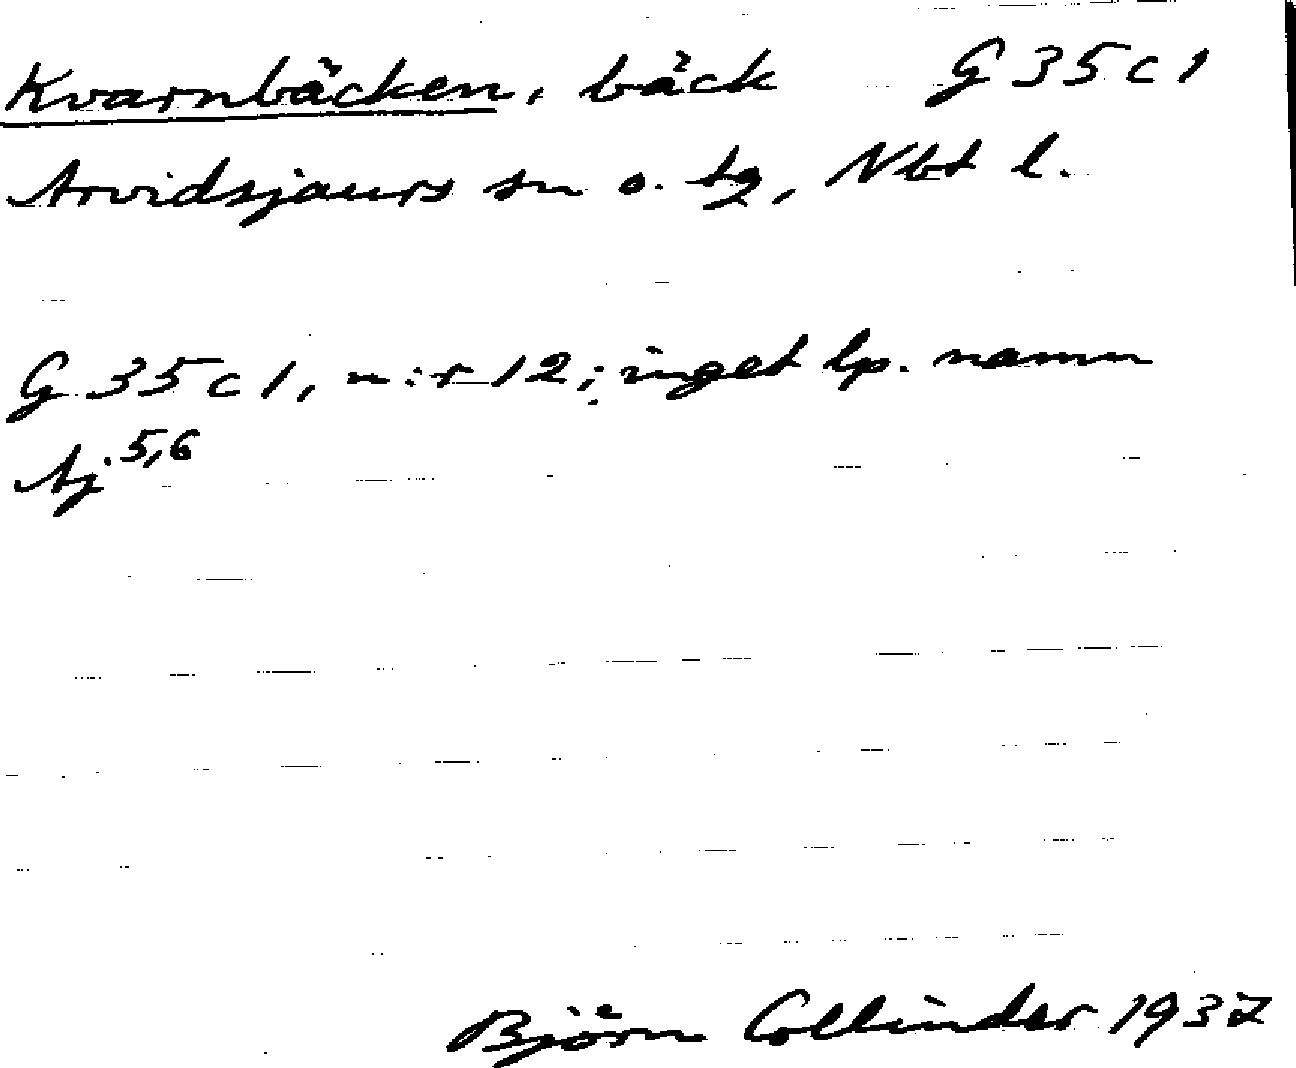 Kvarnbäcken, bäck G 35 c 1
Arvidsjaurs sn o. tg, Nbt l.
G 35 c 1, n:r 12; inget lp. namn
Aj 5,6
Björn Collinder 1937